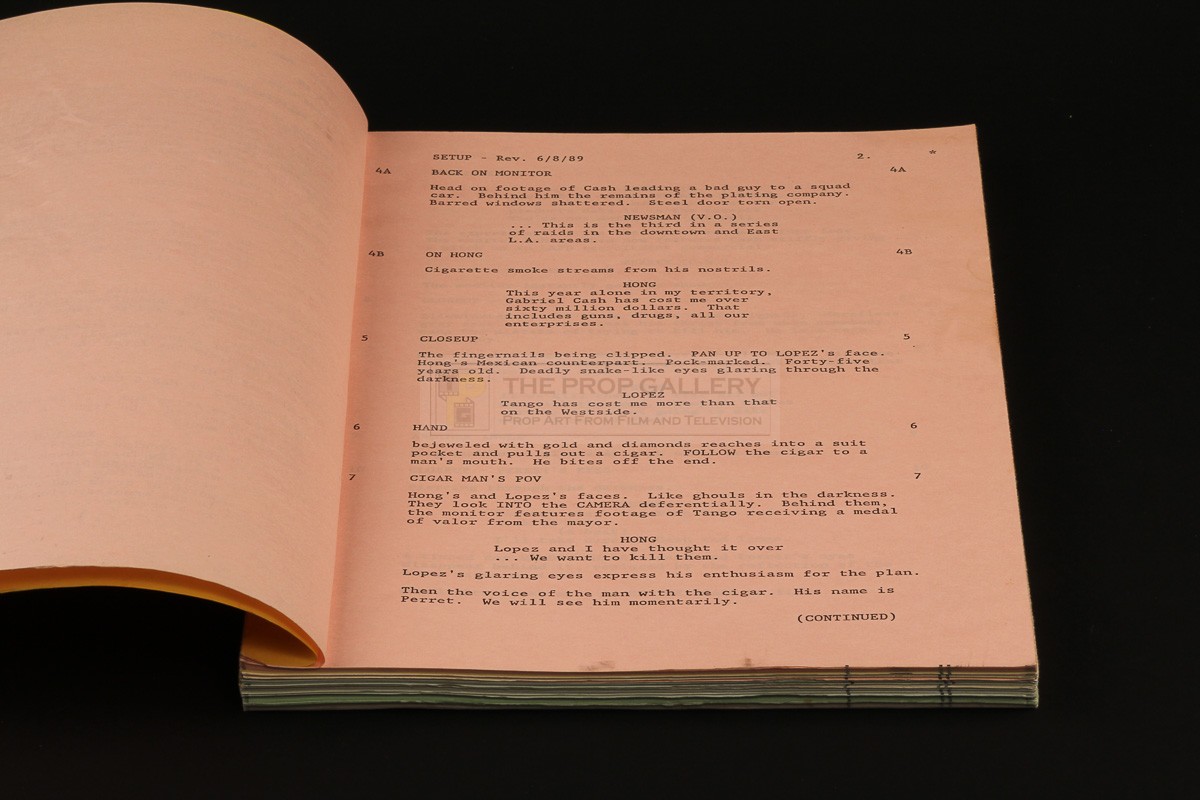 SETUP - Rev. 6/8/89 2. *
4A BACK ON MONITOR 4A
Head on footage of Cash leading a bad guy to a squad
car. Behind him the remains of the plating company.
Barred windows shattered. Steel door torn open.
NEWSMAN (V.O.)
... This is the third in a series
of raids in the downtown and East
L.A. areas.
4B ON HONG 4B
Cigarette smoke streams from his nostrils.
HONG
This year alone in my territory,
Gabriel Cash has cost me over
sixty million dollars. That
includes guns, drugs, all our
enterprises.
5 CLOSEUP 5
The fingernails being clipped. PAN UP TO LOPEZ's face.
Hong's Mexican counterpart. Pock-marked. Forty-five
years old. Deadly snake-like eyes glaring through the
darkness.
THE PROP GALLERY
LOPEZ
Tango has cost me more than that
on the Westside.
PROP ART FROM FILM AND TELEVISION
6 HAND 6
bejeweled with gold and diamonds reaches into a suit
pocket and pulls out a cigar. FOLLOW the cigar to a
man's mouth. He bites off the end.
7 CIGAR MAN'S POV 7
Hong's and Lopez's faces. Like ghouls in the darkness.
They look INTO the CAMERA deferentially. Behind them,
the monitor features footage of Tango receiving a medal
of valor from the mayor.
HONG
Lopez and I have thought it over
... We want to kill them.
Lopez's glaring eyes express his enthusiasm for the plan.
Then the voice of the man with the cigar. His name is
Perret. We will see him momentarily.
(CONTINUED)